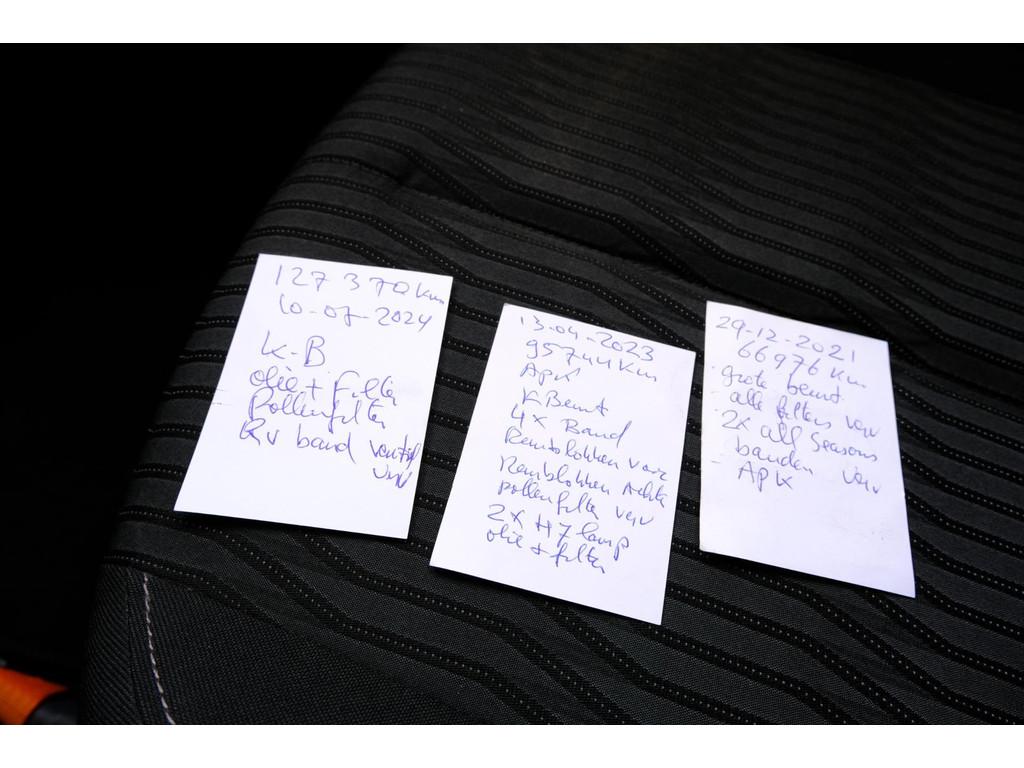 127 370 km
10-07-2024
K-B
olie + Filter
Pollenfilter
Rv band ventiel
verv
13-04-2023
95744 Km
APK
K Beurt
4x Band
Remblokken voor
Remblokken Achter
pollenfilter verv
2x H7 lamp
olie + filter
29-12-2021
66976 Km
- grote beurt
- alle filters verv
- 2x all seasons
banden verv
- APK